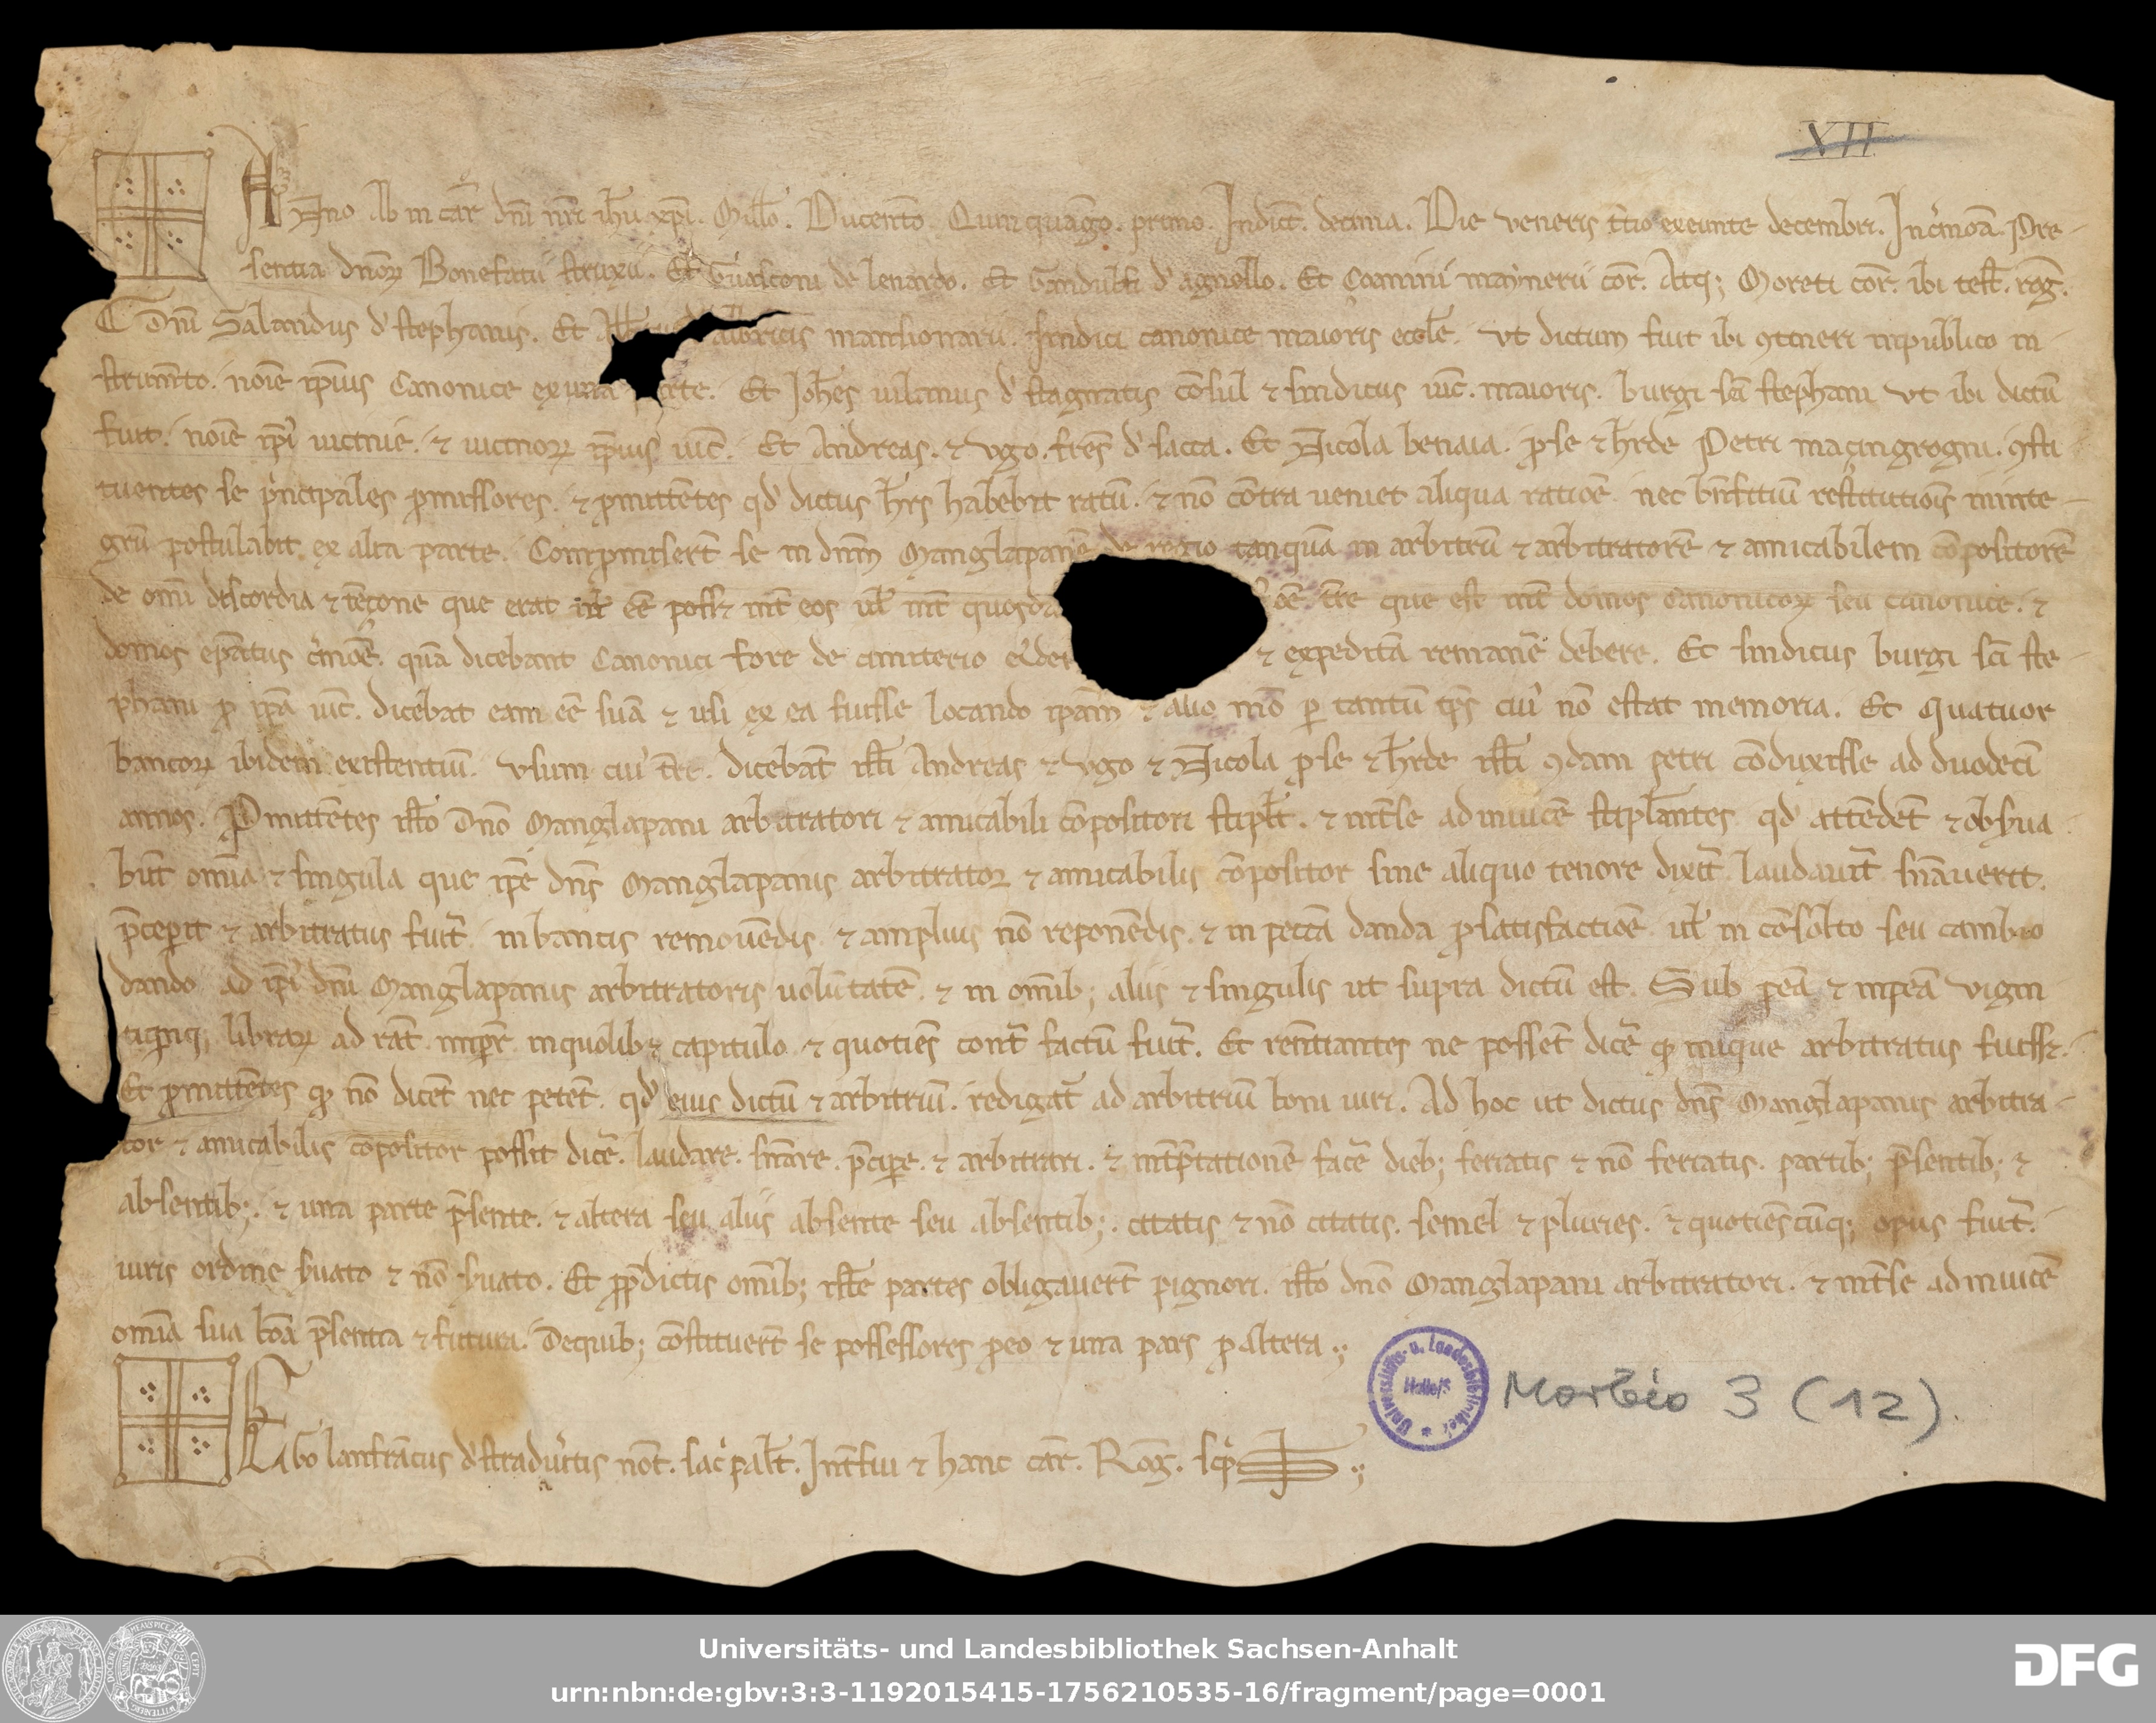 XII
ANno Ab in car̄ dn̄i nr̄i ih̄u xp̄i. Mill̄o. Ducent̄o. Qu̅i̅nquag̅o. primo. Indict̄. decima. Die veneris t̄tio exeunte decembr̄. In c̓mōa. Pre-
sentia dn̄oꝝ Bonefatii struxii. Et Guasconi de lenardo. Et Gandulfi d̓ agnello. Et Çoanini maynerii cor̄. Atq; Moreti cor̄. ibi test̄. rog̅.
Dn̄i Salandus d̓ stephanis. Et mansionarii. sindici canonice maioris eccl̄e. vt dictum fuit ibi ꝯtineri in publico in-
strum̄to. noīe ip̄ius Canonice ex una parte. Et Joh̄es uilanus d̓ stagnatis cōsul ⁊ sindicus uic̄. maioris. burgi sc̄i stephani vt ibi dictū
fuit. noīe ip̄i uicinie. ⁊ uicinoꝝ ip̄ius uic̄. Et Andreas. ⁊ vgo. fr̄es d̓ sacca. Et Nicola benaia. ꝓ se ⁊ h̄rde Petri maçingrogni. ꝯsti-
tuentes se p̓ncipales ꝓmissores. ⁊ ꝓmittētes qd̓ dictus h̄rs habebit ratū. ⁊ nō cōtra ueniet aliqua ratiōe nec bn̄fitiū restitutiōis in inte-
grū postulabit. ex alia parte. Comꝓmiserūt se in dn̄m Manglapanē de tanquā in arbitrū ⁊ arbitratorē ⁊ amicabilem cōpositorē
de om̄i discordia ⁊ tēçone que erat ul̄ eē poss; int̄ eos ul̄ int̄ t̄re que est int̄ domos Canonicoꝝ seu canonice. ⁊
domos ep̄atus c̓mōe. quā dicebant Canonici fore de cimiterio ⁊ expeditā remanē debere. Et sindicus burgi sc̄i ste-
phani ꝓ ip̄a uic̄. dicebat eam eē suā ⁊ usi ex ea fuisse locando ip̄am ⁊ alio mō ꝑ tantū tp̄s cui̓ nō estat memoria. Et Quatuor
bancoꝝ ibidem existentiū. vsum cui̓ t̄re. dicebāt isti Andreas ⁊ vgo ⁊ Nicola ꝓ se ⁊ h̄rde isti ꝯdam petri cōduxisse ad duodeci
annos. Ꝓmittētes isto Dn̄o Manglapani arbitratori ⁊ amicabili cōpositori stipl̄t. ⁊ int̄ se ad inuicē stipl̄antes qd̓ attēdēt ⁊ obs̓ua
būt omīa ⁊ singula que ip̄e dn̄s Manglapanus arbitrator ⁊ amicabilis cōpositor sine aliquo tenore dixit̄ laudauit̄ sn̄auerit.
p̄ceꝑit ⁊ arbitratus fuit̄ in bancis remouēdis. ⁊ amplius nō reponēdis. ⁊ in peccā danda ꝓ satisfactiōe ul̄ in cōsolto seu cambio
dando ad ip̄i dn̄i Manglapanis arbitratoris uolūtatē. ⁊ in omīb; aliis ⁊ singulis ut supra dictū est. Sub pēa ⁊ in pēa vigin
tiq̓nq; libraꝝ ad rat̄. imper̄. in quolib; capitulo ⁊ quotiēs cont̄ factū fuit̄. Et renūtiantes ne possēt dicē ꝙ inique arbitratus fuiss;.
Et ꝓmittētes ꝙ nō dicēt nec petēt. qd̓ eius dictū ⁊ arbitriū. redigat̄ ad arbitriū boni uiri. Ad hoc ut dictus dn̄s Manglapanus arbitra-
tor ⁊ amicabilis cōpositor possit dicē. laudare. sn̄are. p̄ciꝑe. ⁊ arbitrari. ⁊ int̄p̄tationē facē dieb; feriatis ⁊ nō feriatis. partib; p̄sentib; ⁊
absentib;. ⁊ una parte p̄sente. ⁊ altera seu aliis absente seu absentib;. citatis ⁊ nō citatis. semel ⁊ pluries. ⁊ quotiēscūq; opus fuit̄.
iuris ordine s̓uato ⁊ nō s̓uato. Et ꝓ p̄dictis omīb; iste partes obligauer̄t pignori. isto dn̄o Manglapani arbitratori. ⁊ int̄ se ad inuicē
omīa sua bōa p̄sentia ⁊ futura. De quib; cōstituer̄t se possessores ꝓ eo ⁊ una pars ꝓ altera.
Ego lanfrācus d̓ stradiu̓tis not̄. sac̓ palat̄. Int̄fui ⁊ hanc car̄. Rog̅. sc̓ps
Universitäts- u. Landesbibliothek Halle/S
Morbio 3 (12).
Universitäts- und Landesbibliothek Sachsen-Anhalt
urn:nbn:de:gbv:3:3-1192015415-1756210535-16/fragment/page=0001
DFG